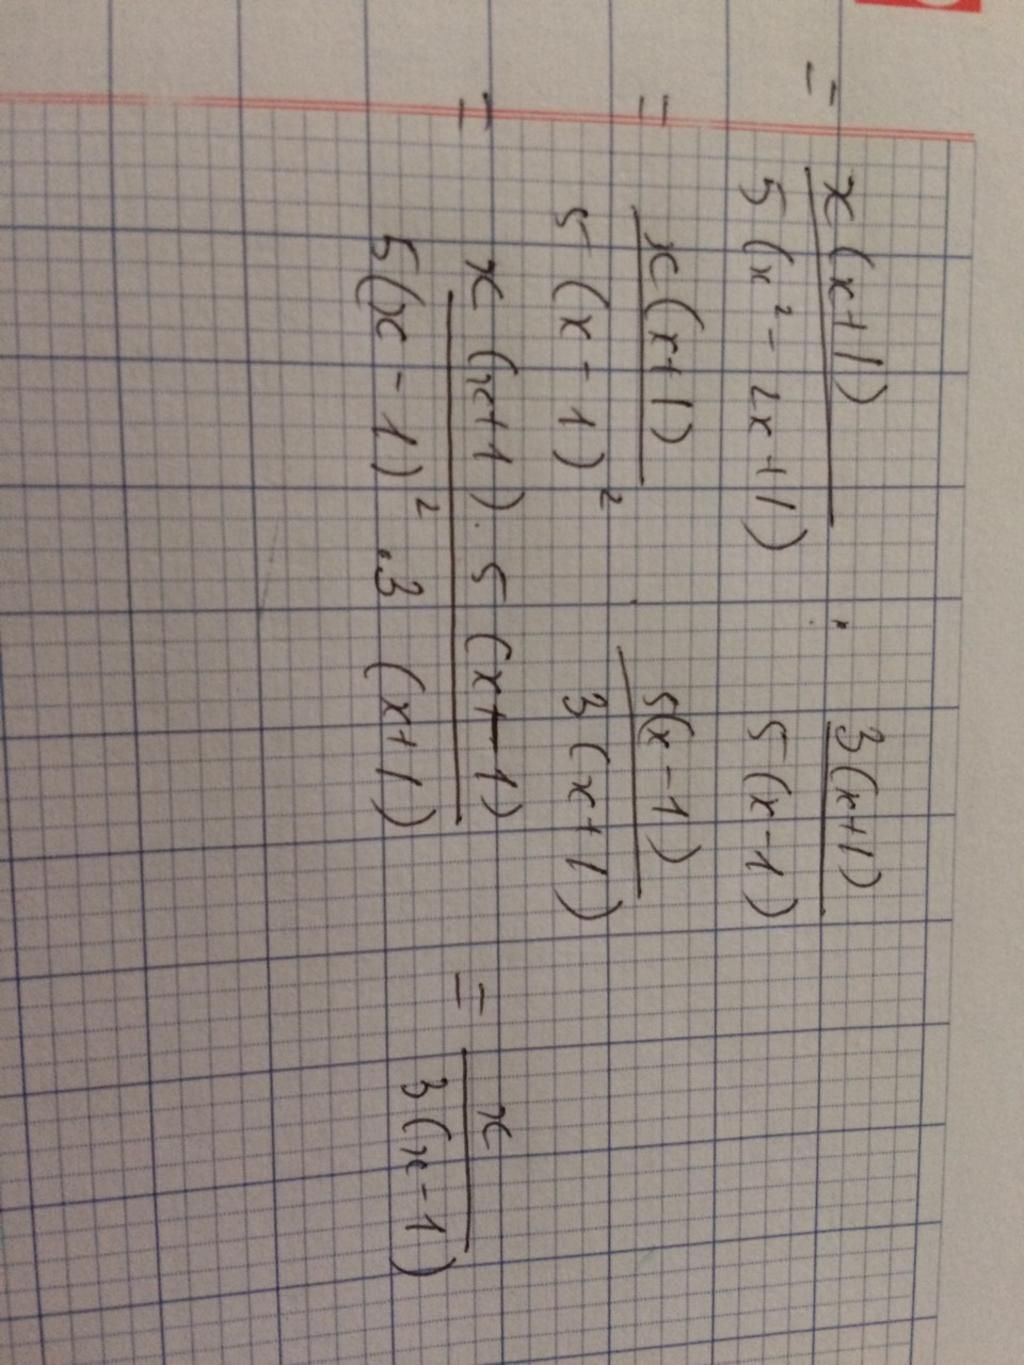 = x(x+1) / 5(x² - 2x+1) : 3(x+1) / 5(x-1)
= x(x+1) / 5(x-1)² . 5(x-1) / 3(x+1)
= x(x+1).5(x-1) / 5(x-1)².3(x+1) = x / 3(x-1)